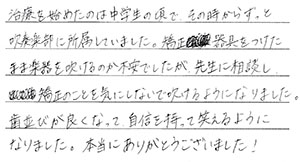 治療を始めたのは中学生の頃で、その時からずっと
吹奏楽部に所属していました。矯正器具をつけた
まま楽器を吹けるのか不安でしたが、先生に相談し、
矯正のことを気にしないで吹けるようになりました。
歯並びが良くなって、自信を持って笑えるように
なりました。本当にありがとうございました！